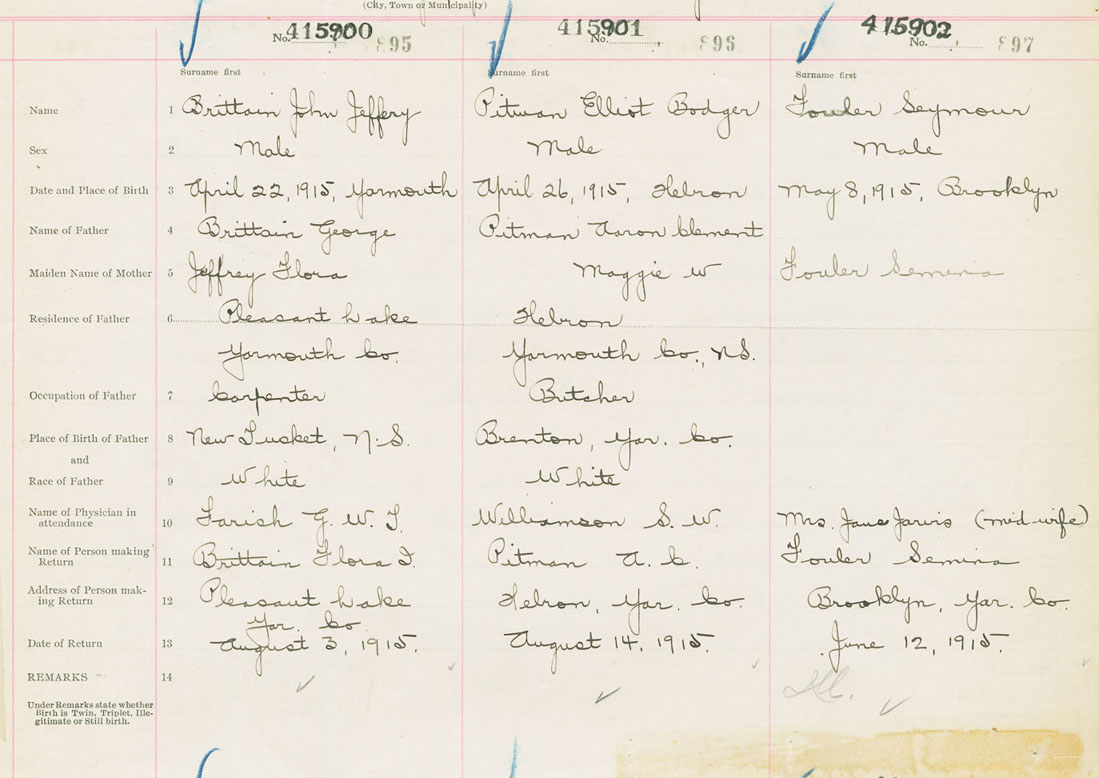 (City, Town or Municipality)
No. 415900 895 415901 No. 896 415902 No. 897
Surname first Surname first Surname first
Name 1 Brittain John Jeffery Pitman Elliot Bodger Fowler Seymour
Sex 2 Male Male Male
Date and Place of Birth 3 April 22, 1915, Yarmouth April 26, 1915, Hebron May 8, 1915, Brooklyn
Name of Father 4 Brittain George Pitman Aaron Clement
Maiden Name of Mother 5 Jeffrey Flora Maggie W Fowler Semina
Residence of Father 6 Pleasant Lake Hebron
Yarmouth Co. Yarmouth Co., N.S.
Occupation of Father 7 Carpenter Butcher
Place of Birth of Father 8 New Tusket, N.S. Brenton, Yar. Co.
and
Race of Father 9 White White
Name of Physician in
attendance 10 Farish G. W. T. Williamson S. W. Mrs. Jane Jarvis (mid-wife)
Name of Person making
Return 11 Brittain Flora I. Pitman A. C. Fowler Semina
Address of Person mak-
ing Return 12 Pleasant Lake Hebron, Yar. Co. Brooklyn, Yar. Co.
Yar. Co.
Date of Return 13 August 3, 1915. August 14, 1915. June 12, 1915.
REMARKS 14
Under Remarks state whether
Birth is Twin, Triplet, Ille-
gitimate or Still birth.